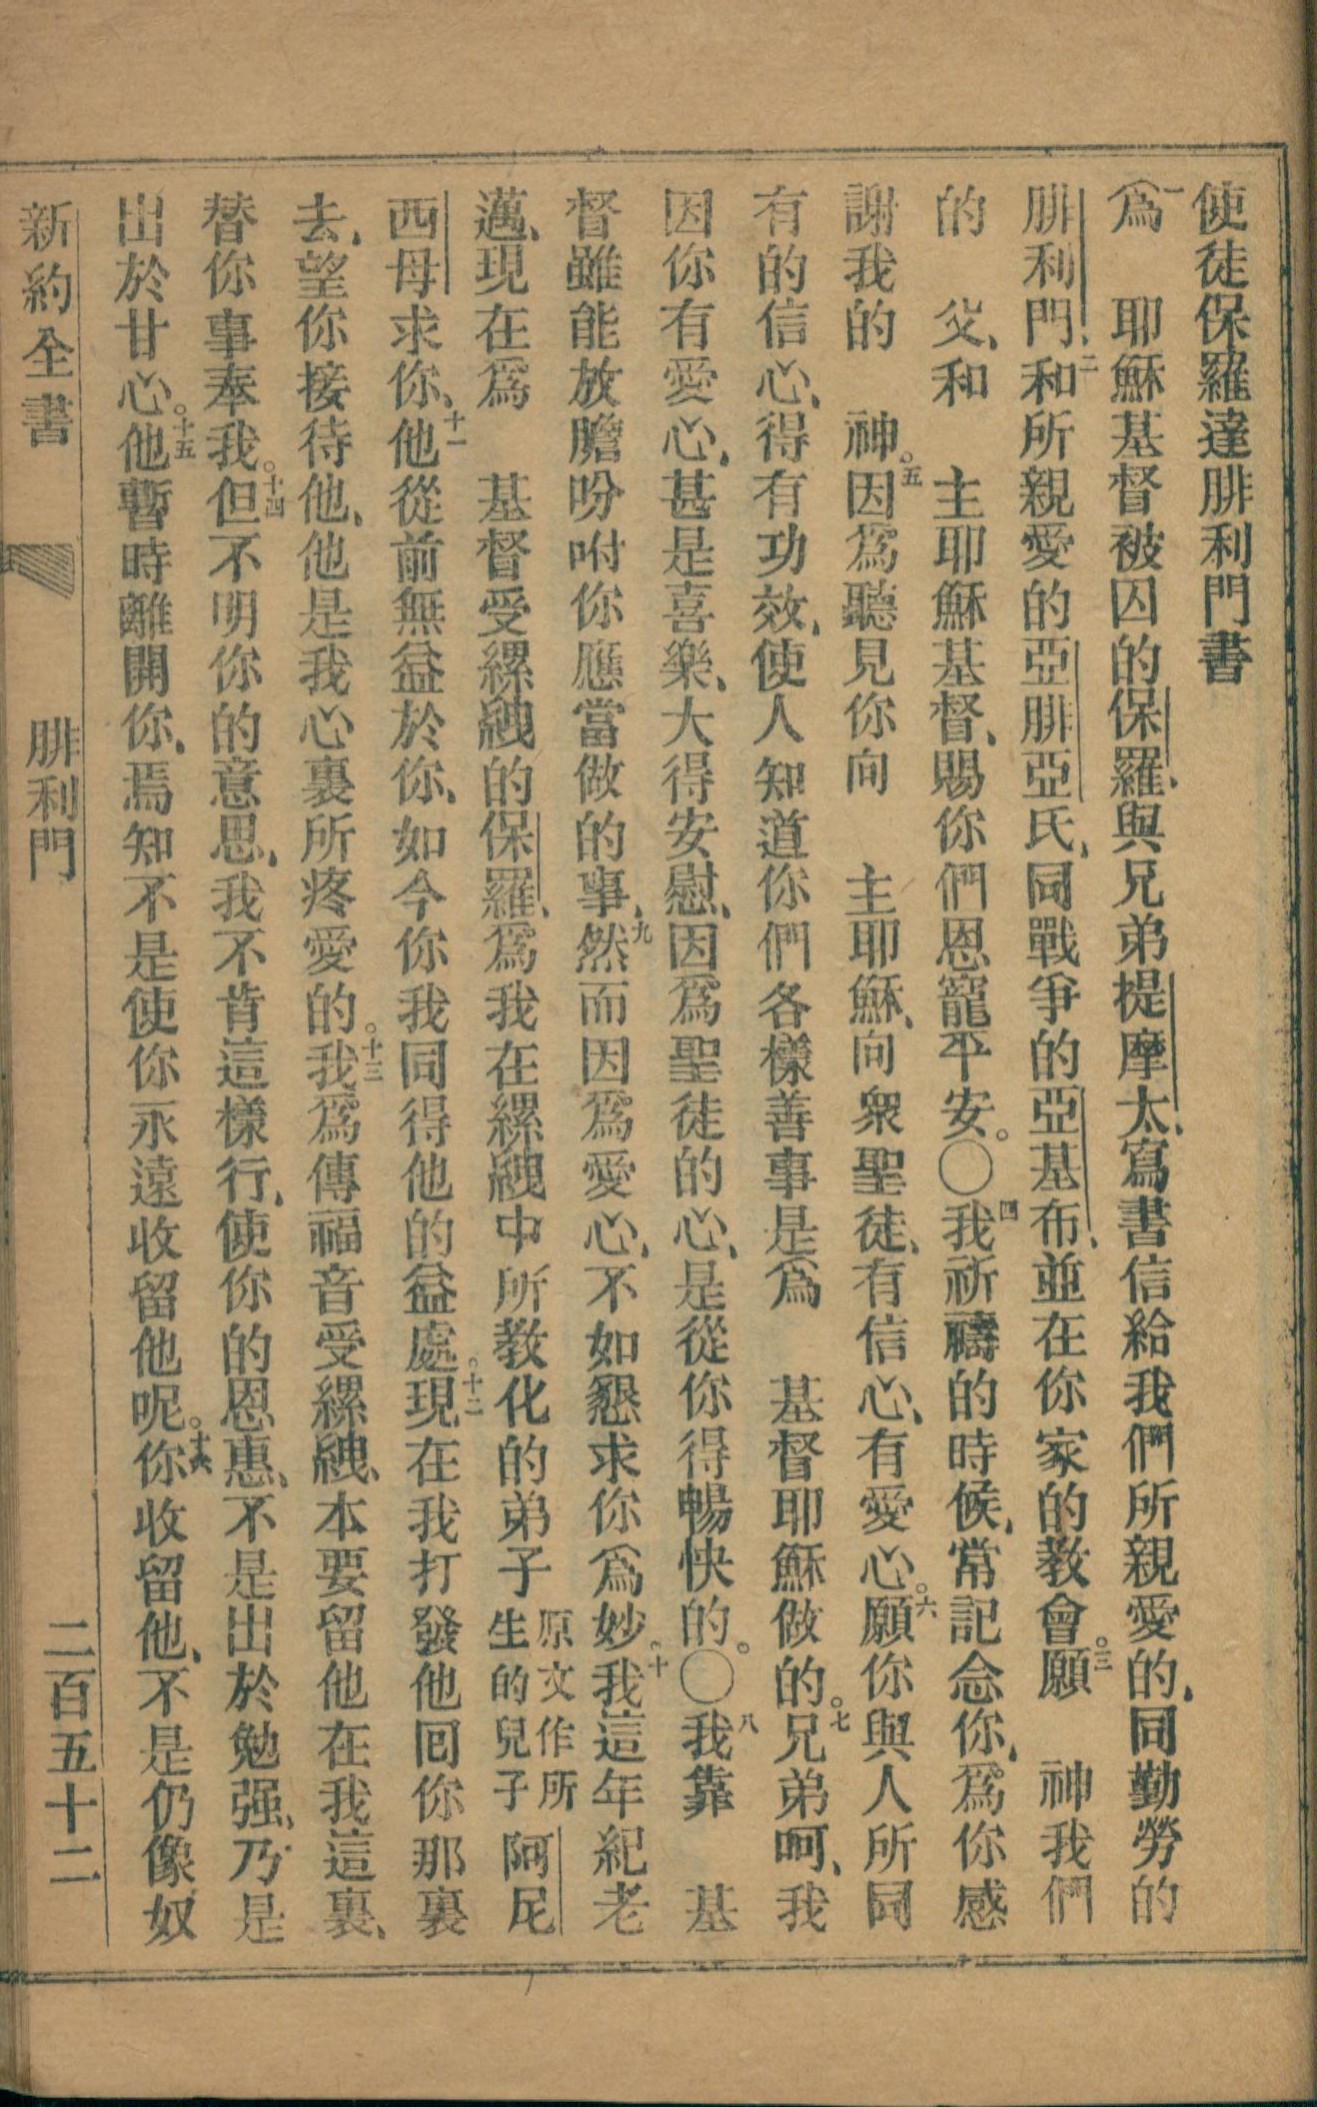 使徒保羅達腓利門書
一爲　耶穌基督被囚的保羅、與兄弟提摩太、寫書信給我們所親愛的、同勤勞的
腓利門、二和所親愛的亞腓亞氏、同戰爭的亞基布、並在你家的教會。三願　神我們
的　父、和　主耶穌基督、賜你們恩寵平安。〇四我祈禱的時候、常記念你、爲你感
謝我的　神。五因爲聽見你向　主耶穌、向衆聖徒、有信心、有愛心。六願你與人所同
有的信心、得有功效、使人知道你們各樣善事是爲　基督耶穌做的。七兄弟呵、我
因你有愛心、甚是喜樂、大得安慰、因爲聖徒的心、是從你得暢快的。〇八我靠　基
督雖能放膽吩咐你應當做的事、九然而因爲愛心、不如懇求你爲妙。十我這年紀老
邁、現在爲　基督受縲絏的保羅、爲我在縲絏中所教化的弟子原文作所生的兒子阿尼
西母求你、十一他從前無益於你、如今你我同得他的益處。十二現在我打發他回你那裏
去、望你接待他、他是我心裏所疼愛的。十三我爲傳福音受縲絏、本要留他在我這裏、
替你事奉我。十四但不明你的意思、我不肯這樣行、使你的恩惠、不是出於勉强、乃是
出於甘心。十五他暫時離開你、焉知不是使你永遠收留他呢。十六你收留他、不是仍像奴
新約全書　腓利門　二百五十二